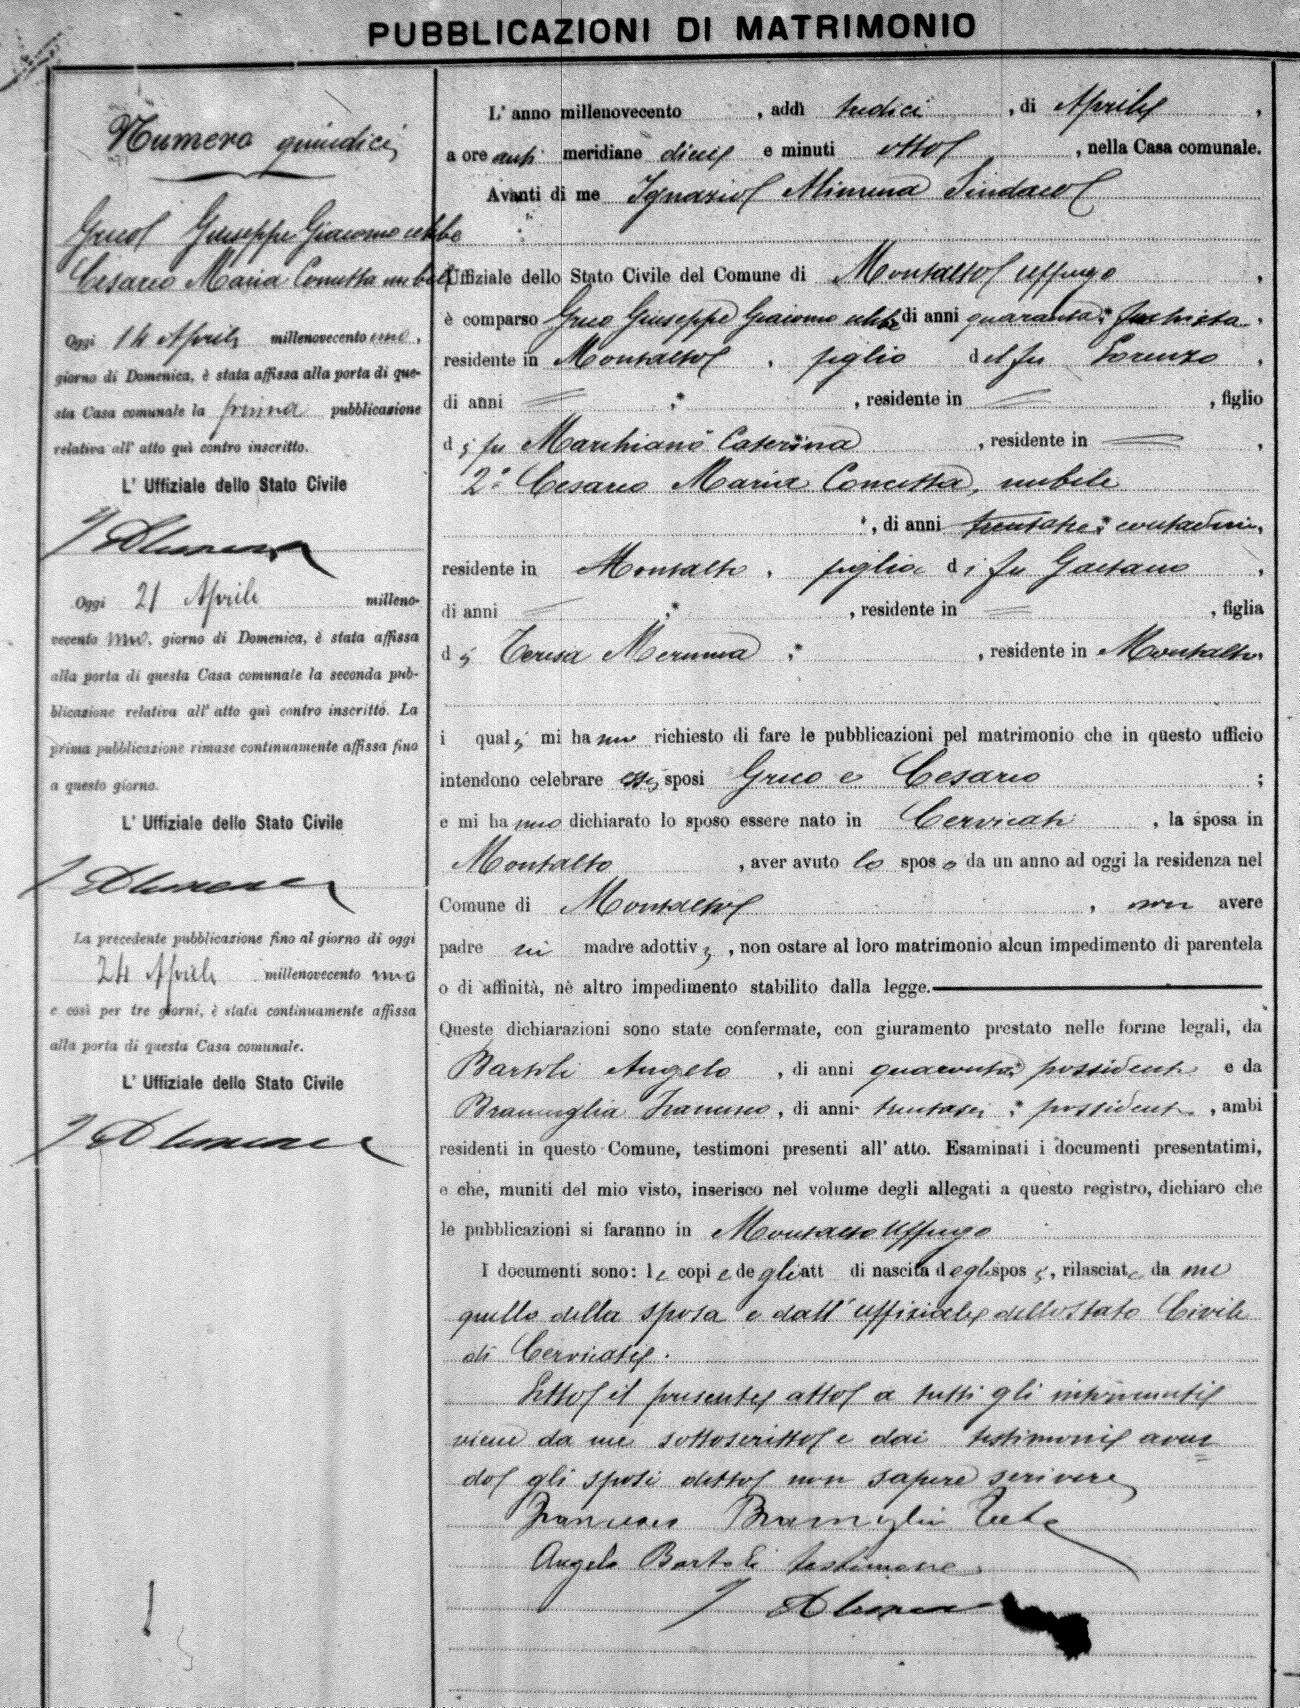 PUBBLICAZIONI DI MATRIMONIO
Numero quindici
Greco Giuseppe Giacomo celibe
Cesario Maria Concetta nubile
Oggi 14 Aprile millenovecento uno,
giorno di Domenica, è stata affissa alla porta di que-
sta Casa comunale la prima pubblicazione
relativa all' atto quì contro inscritto.
L' Uffiziale dello Stato Civile
Oggi 21 Aprile milleno-
vecento uno, giorno di Domenica, è stata affissa
alla porta di questa Casa comunale la seconda pub-
blicazione relativa all' atto quì contro inscritto. La
prima pubblicazione rimase continuamente affissa fino
a questo giorno.
L' Uffiziale dello Stato Civile
La precedente pubblicazione fino al giorno di oggi
24 Aprile millenovecento uno
e così per tre giorni, è stata continuamente affissa
alla porta di questa Casa comunale.
L' Uffiziale dello Stato Civile
L' anno millenovecento , addì tredici , di Aprile ,
a ore anti meridiane dieci e minuti otto , nella Casa comunale.
Avanti di me Ignazio Sindaco
Uffiziale dello Stato Civile del Comune di Montalto Uffugo ,
è comparso Greco Giuseppe Giacomo celibe di anni quaranta
residente in Montalto , figlio del fu Lorenzo ,
di anni = , residente in = , figlio
di fu Marchianò Caterina , residente in = ,
2° Cesario Maria Concetta, nubile
, di anni trentatre, contadina,
residente in Montalto , figlia di fu Gaetano ,
di anni = , residente in = , figlia
di Teresa , residente in Montalto
i quali mi hanno richiesto di fare le pubblicazioni pel matrimonio che in questo ufficio
intendono celebrare essi sposi Greco e Cesario ;
e mi hanno dichiarato lo sposo essere nato in Cervicati , la sposa in
Montalto , aver avuto lo sposo da un anno ad oggi la residenza nel
Comune di Montalto , non avere
padre ni madre adottivi , non ostare al loro matrimonio alcun impedimento di parentela
o di affinità, nè altro impedimento stabilito dalla legge.
Queste dichiarazioni sono state confermate, con giuramento prestato nelle forme legali, da
Bartoli Angelo , di anni quaranta possidente e da
Bramiglia Francesco, di anni trentasei possidente , ambi
residenti in questo Comune, testimoni presenti all' atto. Esaminati i documenti presentatimi,
e che, muniti del mio visto, inserisco nel volume degli allegati a questo registro, dichiaro che
le pubblicazioni si faranno in Montalto Uffugo
I documenti sono: le copie degli att di nascita degli sposi, rilasciate da me
quello della sposa e dall' uffiziale dello Stato Civile
di Cervicati.
Letto il presente atto a tutti gli intervenuti
viene da me sottoscritto e dai testimoni aven
do gli sposi detto non sapere scrivere
Francesco Bramiglia Teste
Angelo Bartoli testimone